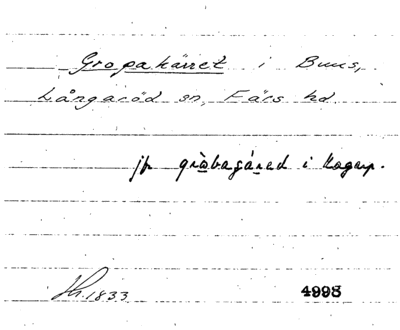 Gropakärret i Buus,
Långaröd sn, Färs hd
jfr gròbagáred i Kagarp.
1833 4998